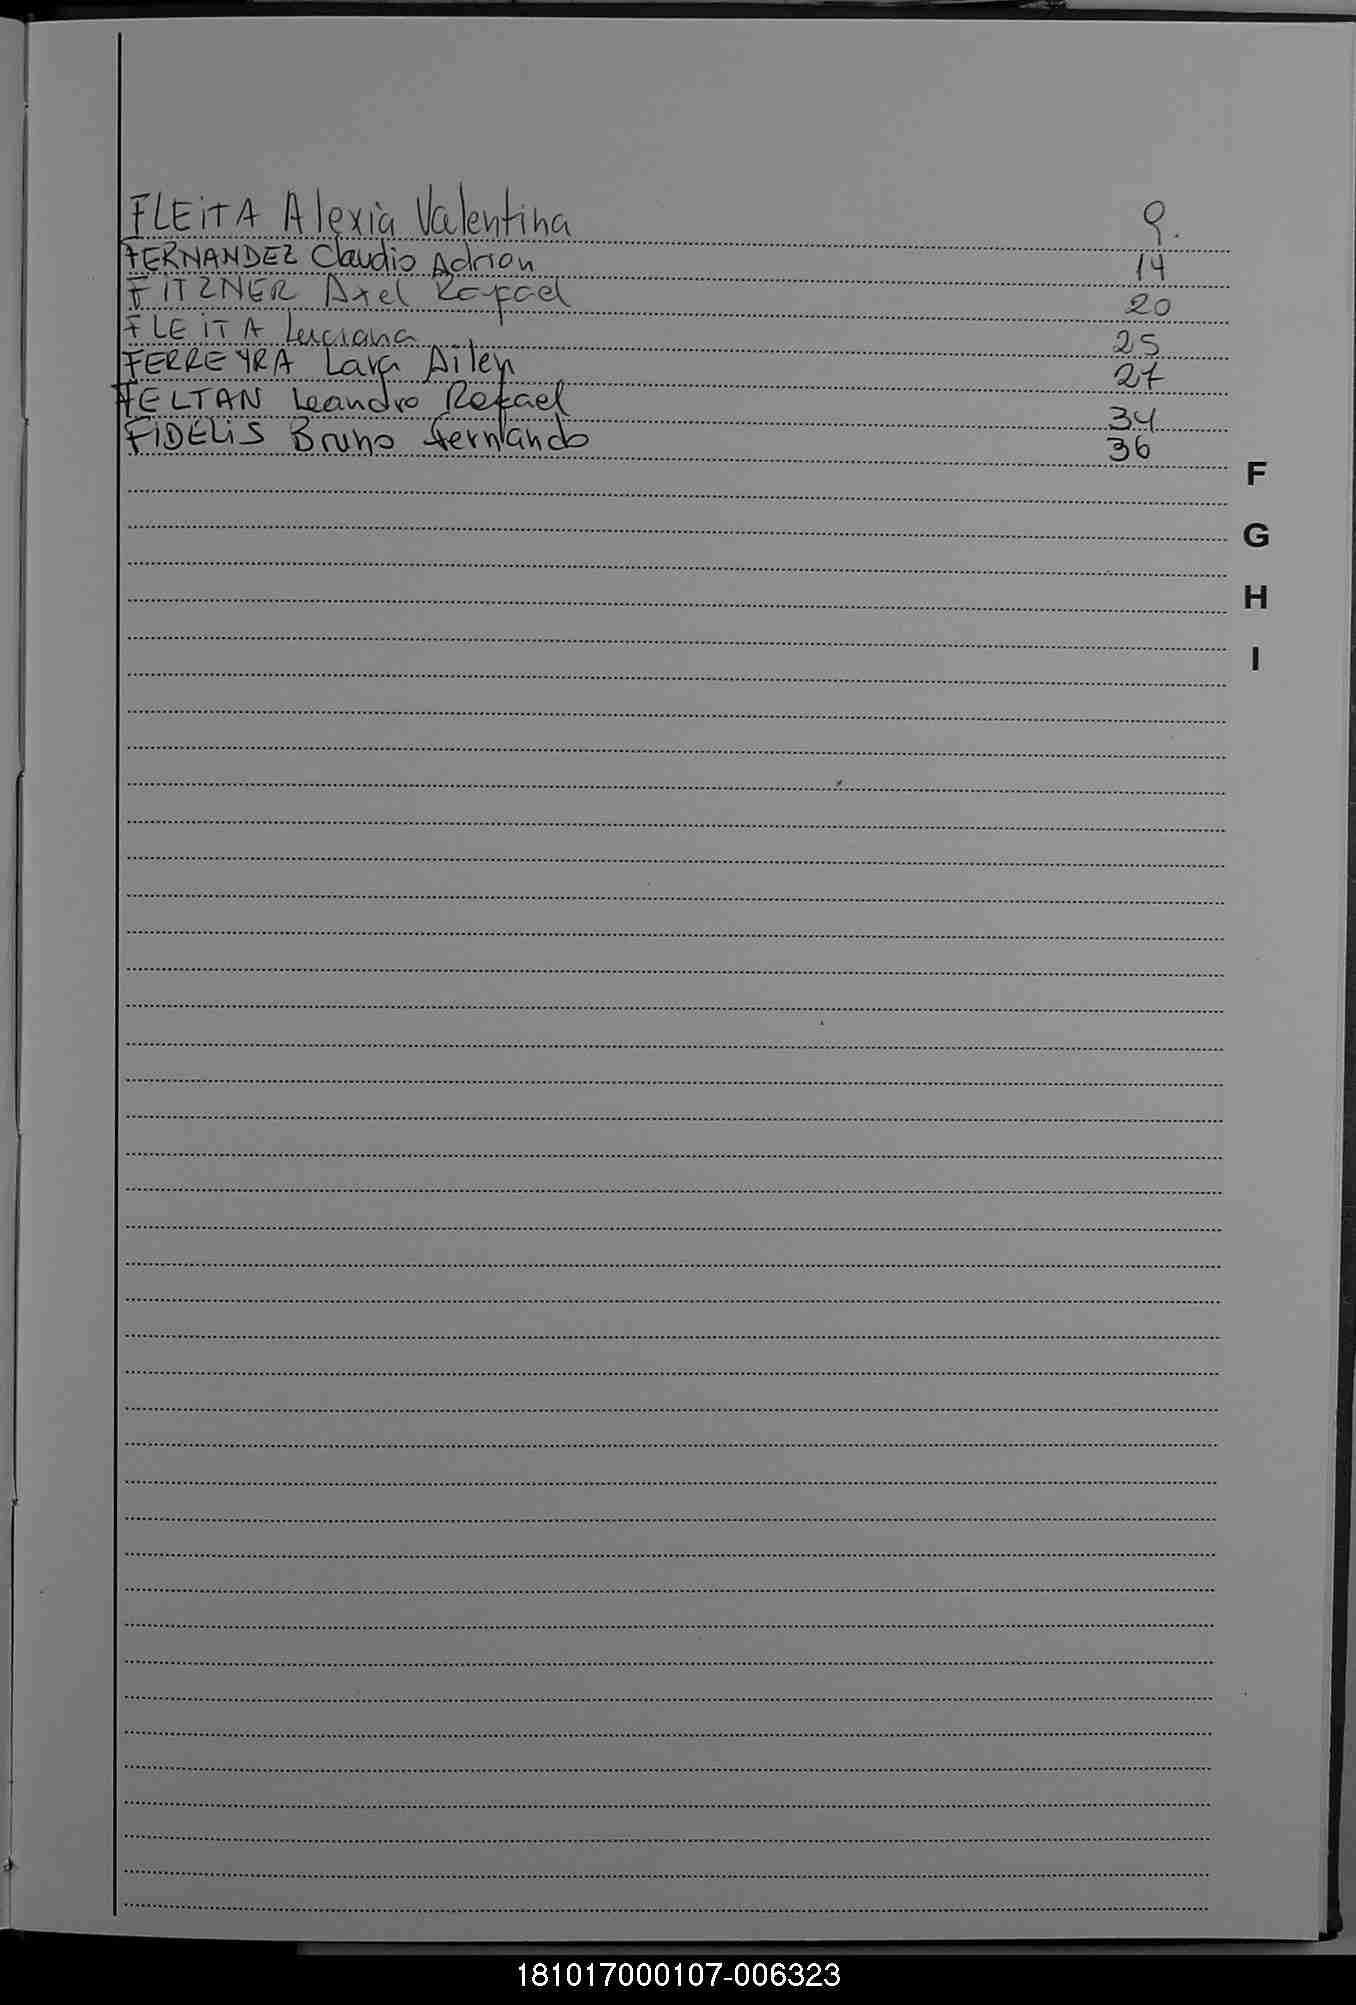 FLEiTA Alexia Valentina 9.
FERNANDEZ Claudio Adrian 14
FITZNER Axel Rafael 20
FLEiTA Luciana 25
FERREYRA Lara Ailen 27
FELTAN Leandro Rafael 34
FIDELiS Bruno fernando 36
F
G
H
I
181017000107-006323